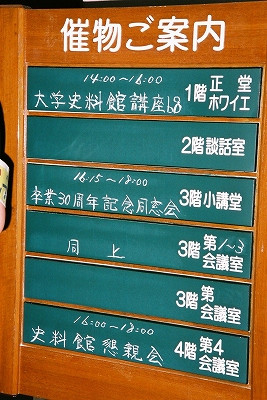 催物ご案内
14:00~16:00
大学史料館講座
1階 正堂
ホワイエ
2階 談話室
16:15~18:00
卒業30周年記念同窓会
3階 小講堂
同上
3階 第1~3
会議室
3階 第
会議室
16:00~18:00
史料館懇親会
4階 第4
会議室